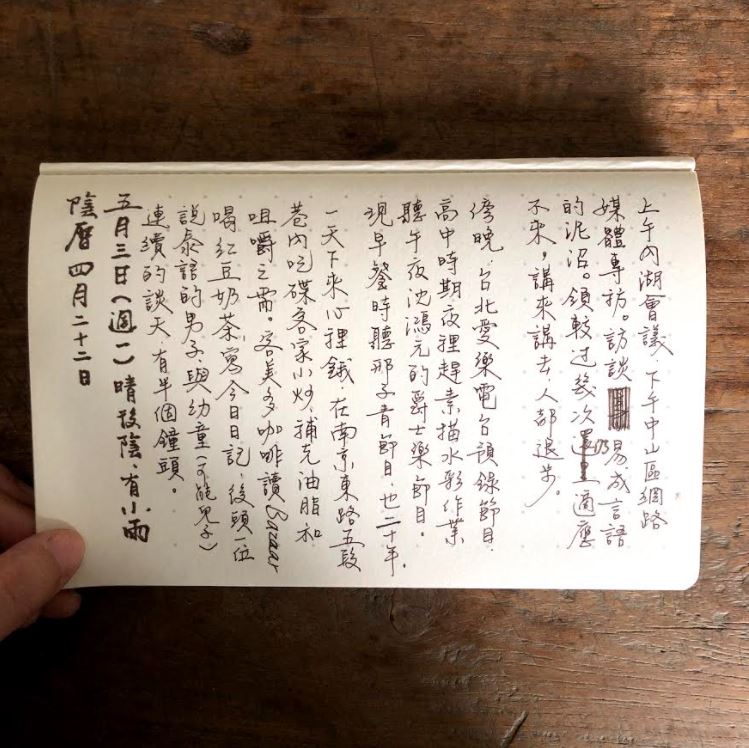 上午內湖會議,下午中山區網路
媒體專訪。訪談易成言語
的泥沼。領較过幾次仍適應
不來,講來講去,人都退步。
傍晚,台北愛樂電台預錄節目.
高中時期夜裡趕素描水彩作業
聽午夜沈鴻元的爵士樂節目。
現早餐時聽邢子青節目,也二十年.
一天下來心裡餓,在南京東路五段
巷內吃碟客家小炒,補充油脂和
咀嚼之需。客美多咖啡讀Bazaar
喝紅豆奶茶,寫今日日記,後頭一位
說泰語的男子,與幼童(可能兒子)
連續的談天,有半個鐘頭。
五月三日(週一)晴後陰,有小雨
陰曆四月二十二日